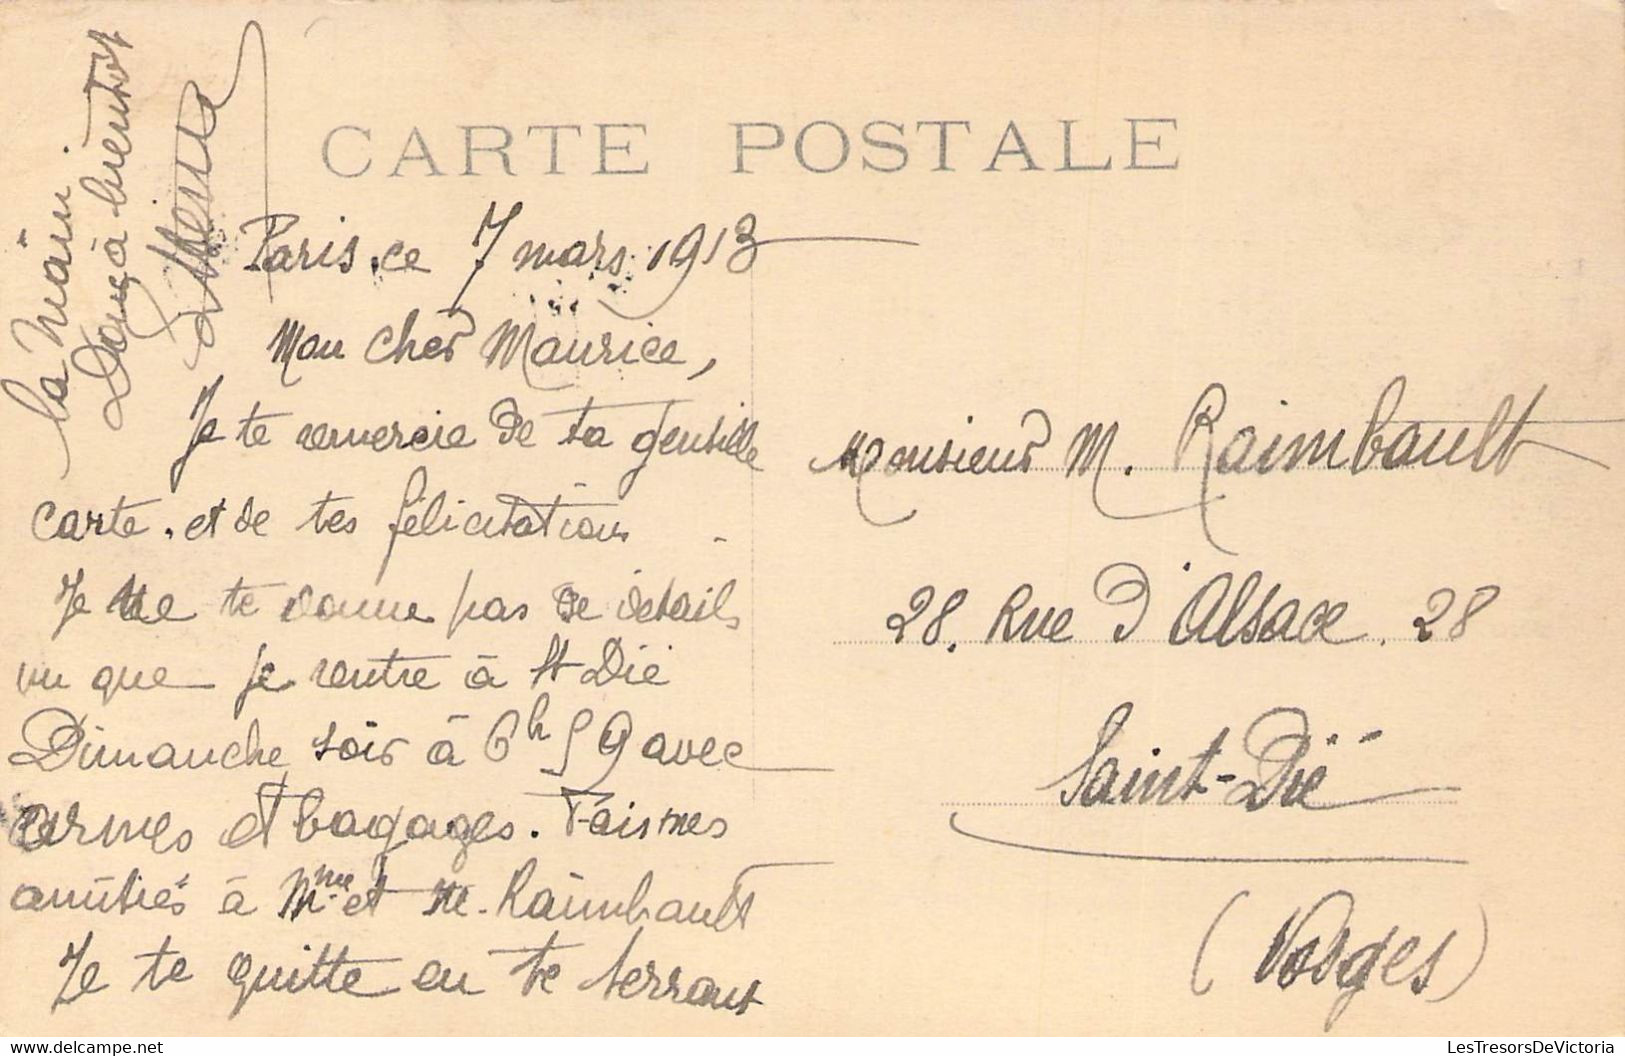 CARTE POSTALE
Paris, ce 7 mars 1913
Mon cher Maurice,
Je te remercie de ta gentille
carte. et de tes félicitations
Je ne te donne pas de détails
vu que je rentre à St Dié
Dimanche soir à 6h 59 avec
armes et bagages. Fais mes
amitiés à Mme et M. Raimbault
Je te quitte en te serrant
la main
Donc à bientôt
Monsieur M. Raimbault
28. Rue d'Alsace. 28
Saint-Dié
(Vosges)
LesTresorsDeVictoria
delcampe.net